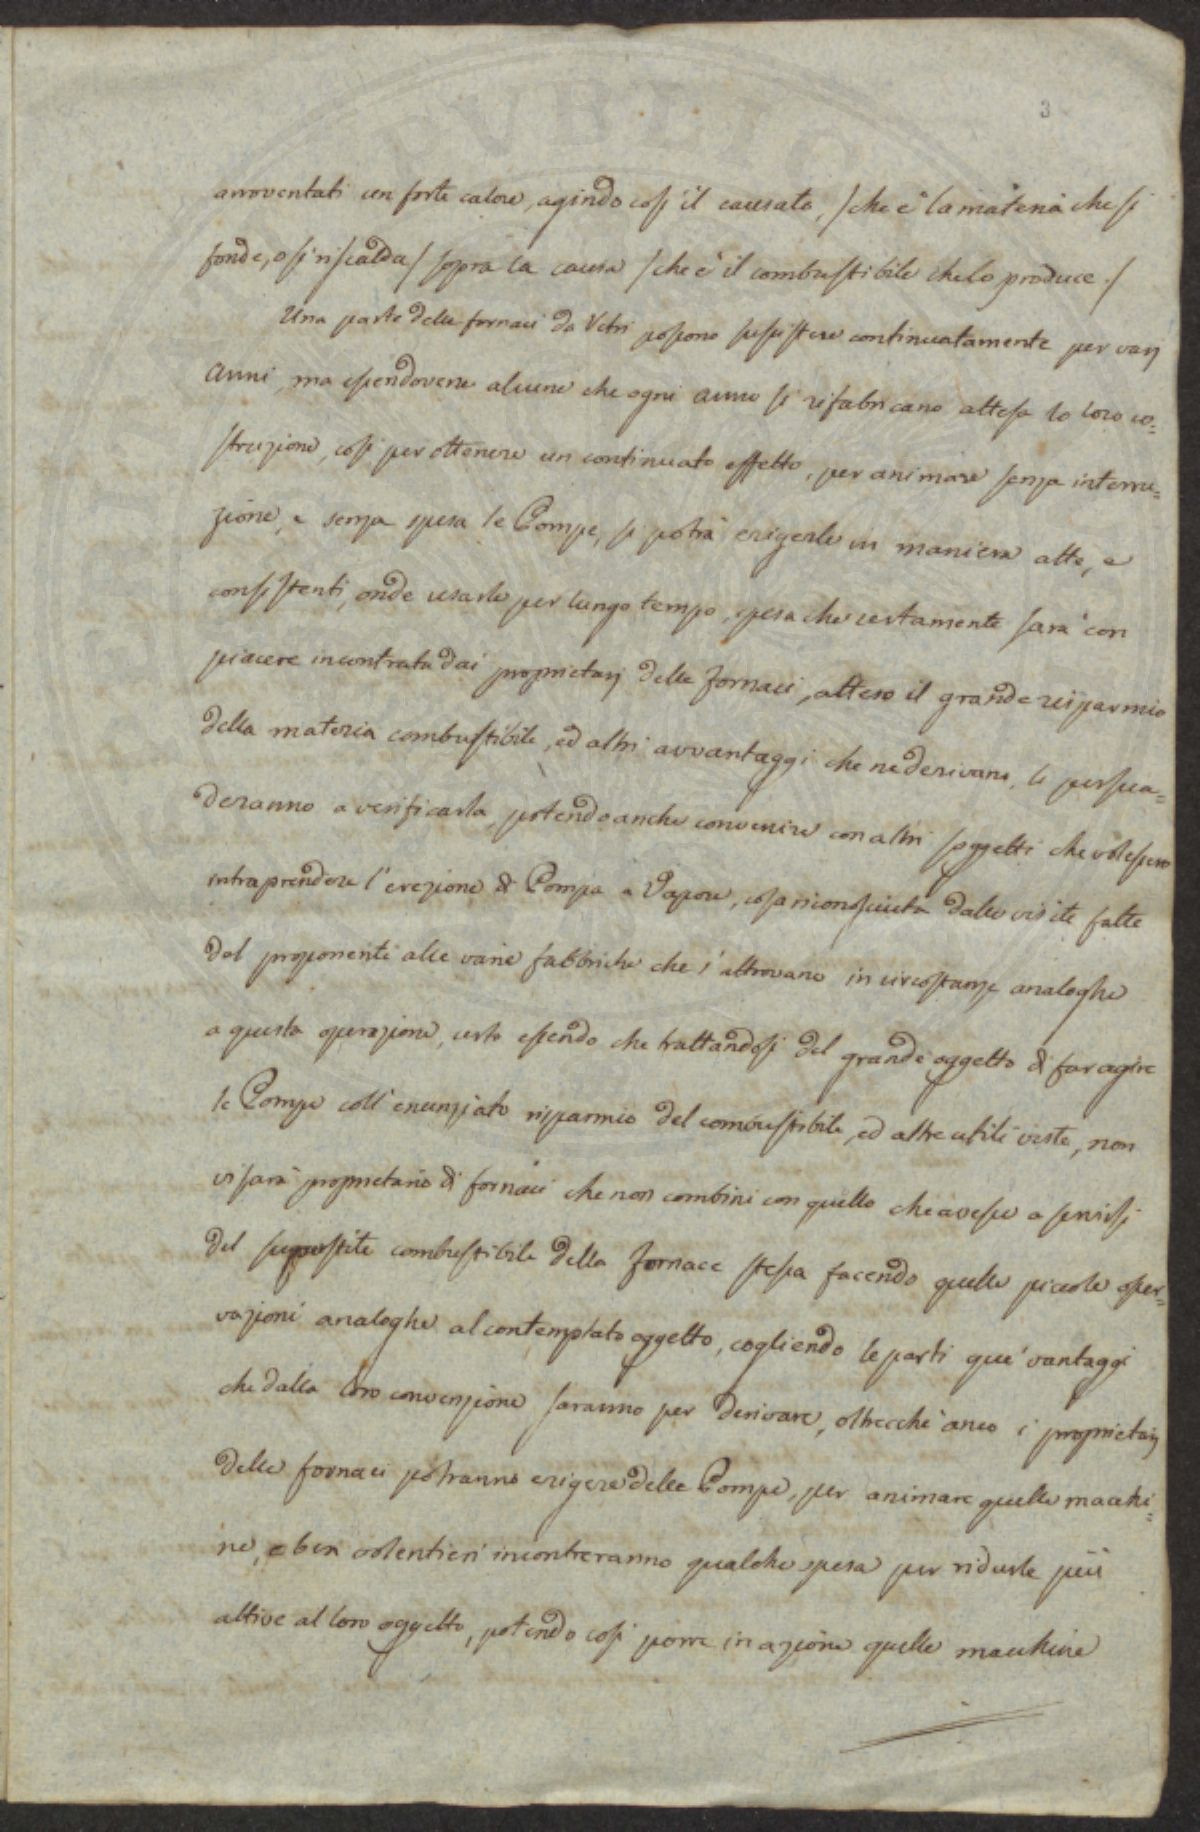 3
arroventati un forte calore, agindo così il causato, /che è la materia che si
fonde, o si riscalda/ sopra la causa /che è il combustibile che lo produce./
Una parte delle fornaci da Vetri possono sussistere continuatamente per varj
anni, ma essendovene alcune che ogni anno si rifabricano attesa la loro co=
struzione, così per ottenere un continuato effetto, per animare senza interru=
zione, e senza spesa le Pompe, si potrà erigerle in maniera atte, e
consistenti, onde usarle per lungo tempo, spesa che certamente sarà con
piacere incontrata dai proprietarj delle fornaci, atteso il grande risparmio
della materia combustibile, ed altri avvantaggi che ne derivano, li persua=
deranno a verificarla, potendo anche convenire con altri soggetti che volessero
intraprendere l'erezione di Pompa a Vapore, cosa riconosciuta dalle visite fatte
dal proponente alle varie fabbriche che s'attrovano in circostanze analoghe
a questa operazione, certo essendo che trattandosi del grande oggetto di far agire
le Pompe coll'enunziato risparmio del combustibile, ed altre utili viste, non
vi sarà proprietario di fornaci che non combini con quello che avesse a servirsi
del superstite combustibile della fornace stessa facendo quelle piccole osser=
vazioni analoghe al contemplato oggetto, cogliendo le parti que' vantaggi
che dalla loro convenzione saranno per derivare, oltrecchè anco i proprietarj
delle fornaci potranno erigere delle Pompe, per animare quelle macchi=
ne, e ben volentieri incontreranno qualche spesa per ridurle più
attive al loro oggetto, potendo così porre in azione quelle macchine